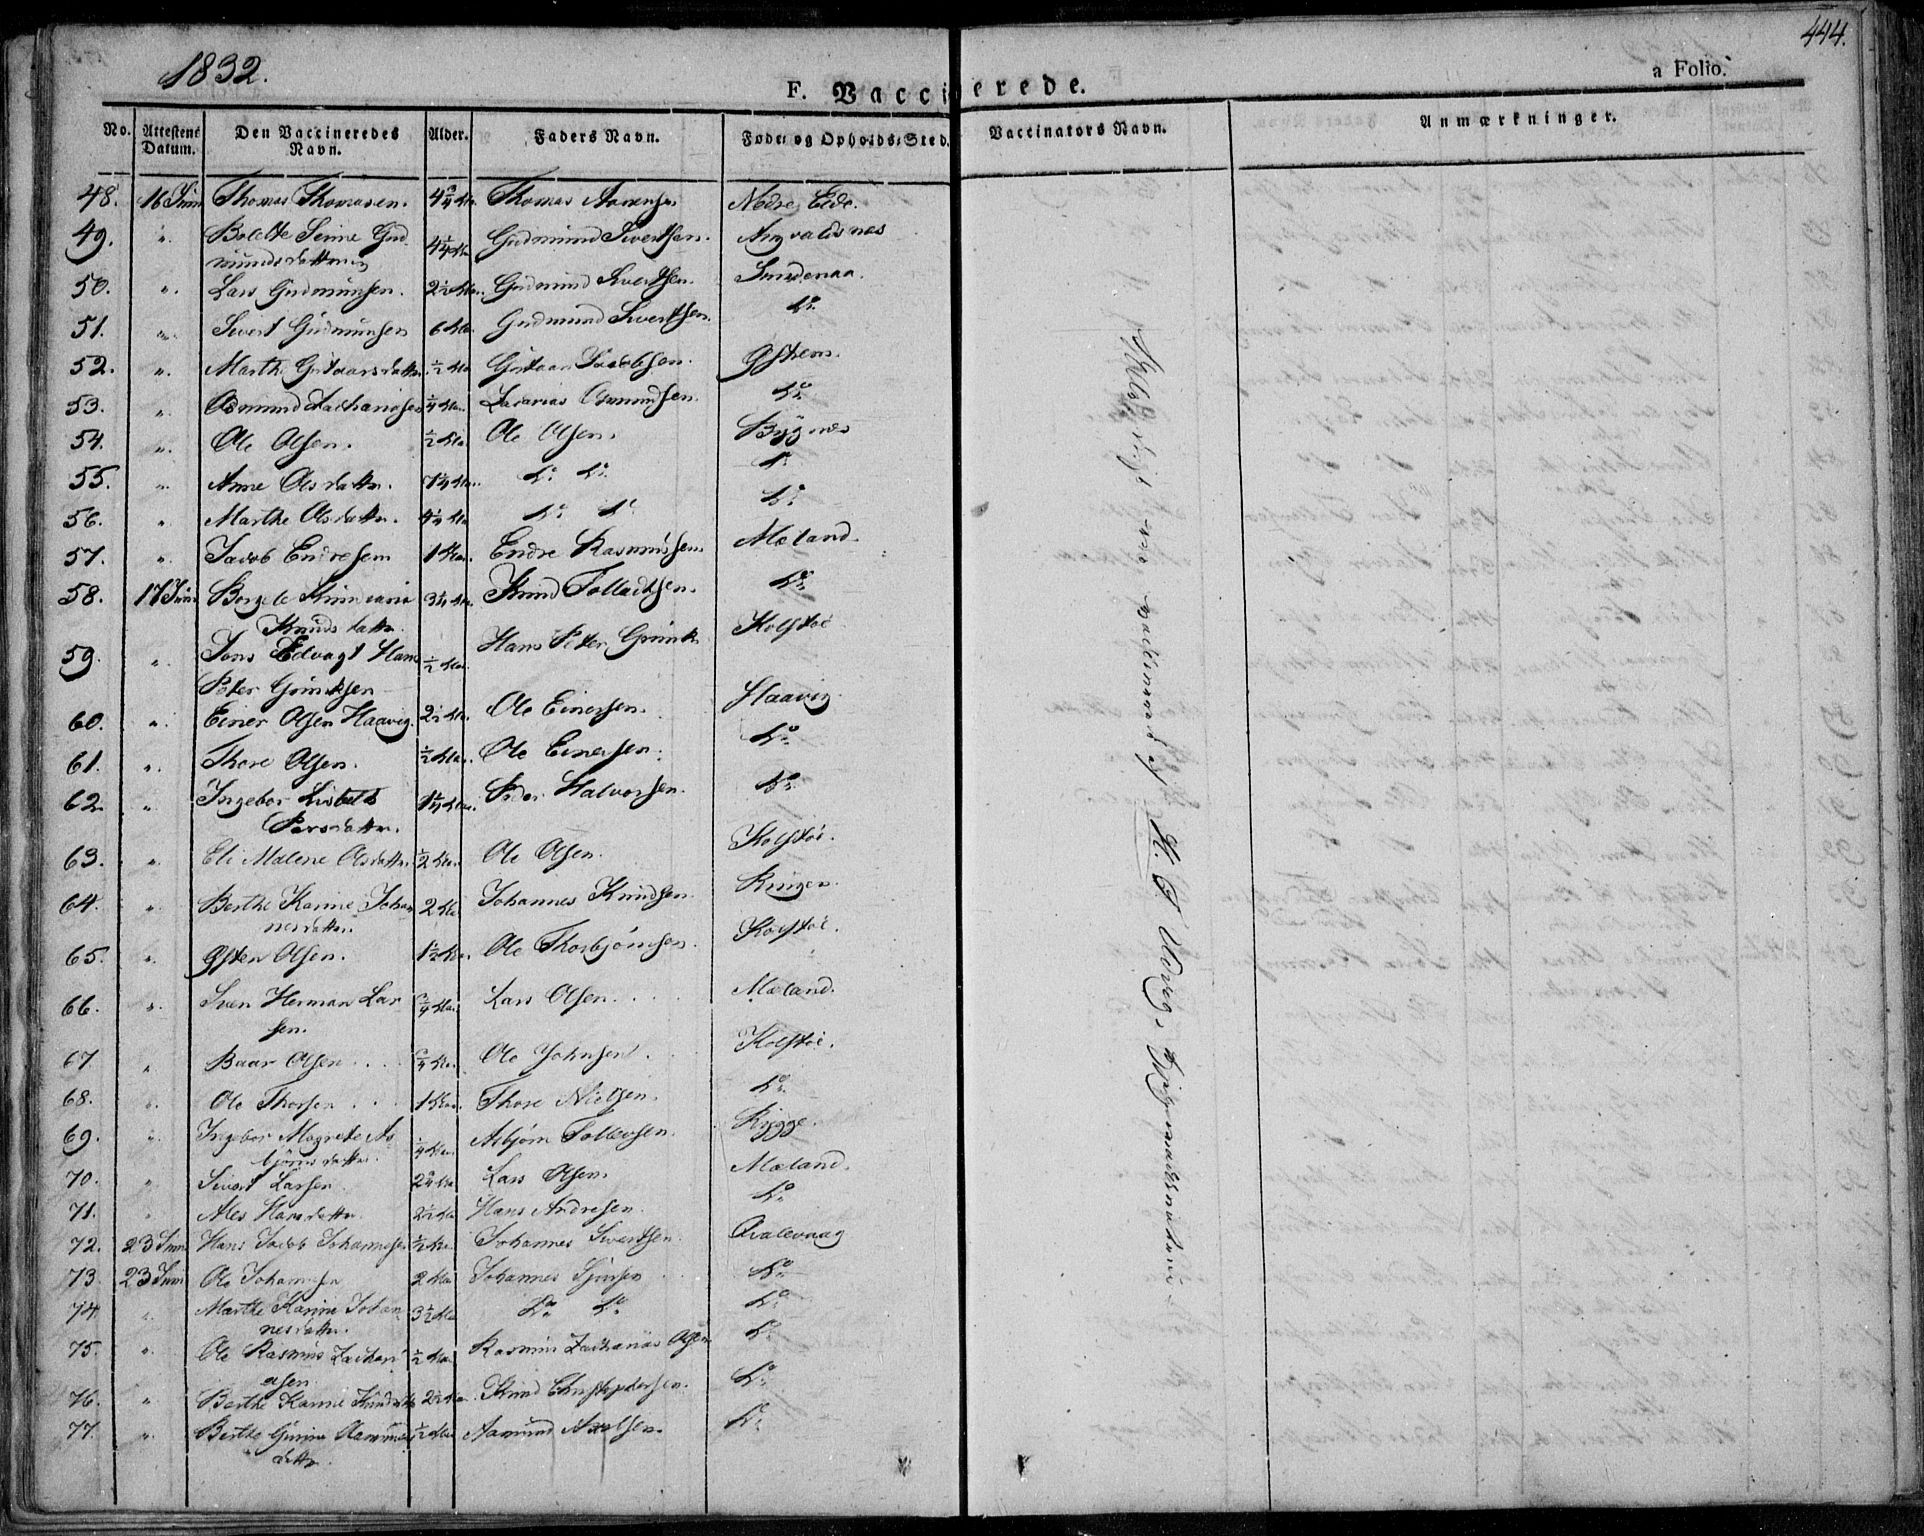 1832.
444.
F. Vaccinerede.
a Folio.
No. Attestens Datum. Den Vaccineredes Navn. Alder. Faders Navn. Føde- og Opholds-Sted. Vaccinators Navn. Anmærkninger.
48. 16 Juni Thomas Thomasen. 4 3/4 Aar Thomas Nedre Eide.
49. " Bolette Serine Gudmundsdatter 4 1/4 Aar Gudmund Sivertsen. Augvaldsnæs
50. " Lars Gudmunsen. 2 1/2 Aar Gudmund Sivertsen.
51. " Sivert Gudmunsen 6 Aar Gudmund Sivertsen. do
52. " Marthe datter 1/2 Aar Jacobsen. Østhem.
53. " Osmund Zachariasen 1/4 Aar Zacarias Osmundsen. do
54. " Ole Olsen. 1/2 Aar Ole Olsen. Bygnes
55. " Anne Olsdatter. 1 1/4 Aar do do do
56. " Marthe Olsdatter. 4 1/4 Aar do do do
57. " Jacob Endresen 1 Aar. Endre Rasmusen Meland.
58. 17 Juni Knudsdatter. 3 1/4 Aar Knud Tollachsen. do
59. " Jens Edvagt Hans Peter 1/2 Aar Hans Peter Kolstöe
60. " Einer Olsen Haavig 2 1/2 Aar Ole Einersen. Haavig
61. " Thore Olsen. 1/2 Aar Ole Einersen. do
62. " Ingebor Lisbeth Persdatter. 1 1/4 Aar Peder Halvorsen. do
63. " Eli Malene Olsdatter 1/2 Aar. Ole Olsen. Kolstöe.
64. " Berthe Karine Johannesdatter. 2 Aar Johannes Knudsen. Ringen.
65. " Østen Olsen. 1 1/2 Aar. Ole Thorbjörnsen Kolstöe.
66. " Sven Herman Larsen. 3/4 Aar Lars Olsen. Mæland.
67 " Baar Olsen 3/4 Aar. Ole Johnsen. Kolstöe.
68. " Ole Thorsen 1 Aar. Thore Nielsen. do
69. " Ingebor Magrete Asbjörnsdatter. 1/4 Aar. Asbjörn Tollevsen. Rygge.
70. " Sivert Larsen 2 3/4 Aar Lars Olsen. Mæland.
71. " Ales Hansdatter 2 1/2 Aar Hans Andresen. do
72. 23 Juni Hans Jacob Johannesen 1/2 Aar. Johannes Sivertsen Qvalevaag
73. 23 Juni Ole Johannesen 2 Aar Johannes do
74. " Marthe Karine Johannesdatter. 3 1/2 Aar do do do
75. " Ole Rasmus Zachariasen 1/2 Aar. Rasmus Zacharias Olsen do
76. " Berthe Karine Knudsdatter 2 1/2 Aar Knud Christophersen. do
77. " Berthe Gurine datter 1/2 Aar Aamund do
ere vaccinerede af H. C.